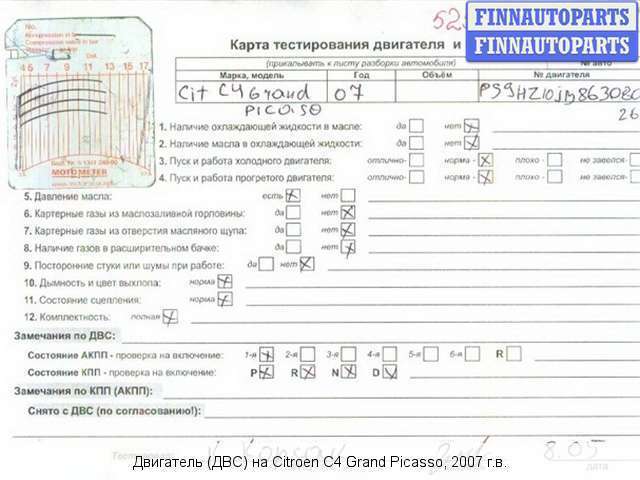 No.
FINNAUTOPARTS
FINNAUTOPARTS
Карта тестирования двигателя и
(прикалывать к листу разборки автомобиля)
№ авто
Марка, модель Год Объём № двигателя
Cit C4 Grand 07
Picasso
1. Наличие охлаждающей жидкости в масле: да нет
2. Наличие масла в охлаждающей жидкости: да нет
3. Пуск и работа холодного двигателя: отлично- норма - плохо - не завелся-
4. Пуск и работа прогретого двигателя: отлично- норма - плохо - не завелся-
5. Давление масла: есть нет
6. Картерные газы из маслозаливной горловины: да нет
7. Картерные газы из отверстия масляного щупа: да нет
8. Наличие газов в расширительном бачке: да нет
9. Посторонние стуки или шумы при работе: да нет
10. Дымность и цвет выхлопа: норма
11. Состояние сцепления: норма
12. Комплектность: полная
Замечания по ДВС:
Состояние АКПП - проверка на включение: 1-я 2-я 3-я 4-я 5-я 6-я R
Состояние КПП - проверка на включение: P R N D
Замечания по КПП (АКПП):
Снято с ДВС (по согласованию!):
4 5 7 9 11 13 15 17
MOTOMETER
Тестировал
8.05
дата
Двигатель (ДВС) на Citroen C4 Grand Picasso, 2007 г.в.